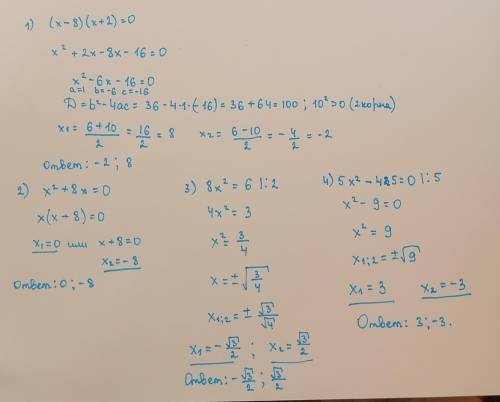 1) (x-8)(x+2)=0
x²+2x-8x-16=0
x²-6x-16=0
a=1 b=-6 c=-16
D=b²-4ac=36-4·1·(-16)=36+64=100; 10²>0 (2 корня)
x₁=(6+10)/2=16/2=8 x₂=(6-10)/2=-4/2=-2
Ответ: -2; 8
2) x²+8x=0
x(x+8)=0
x₁=0 или x+8=0
x₂=-8
Ответ: 0; -8
3) 8x²=6 |:2
4x²=3
x²=3/4
x=±√(3/4)
x₁;₂=±√3/√4
x₁=-√3/2; x₂=√3/2
Ответ: -√3/2; √3/2
4) 5x²-45=0 |:5
x²-9=0
x²=9
x₁;₂=±√9
x₁=3 x₂=-3
Ответ: 3;-3.